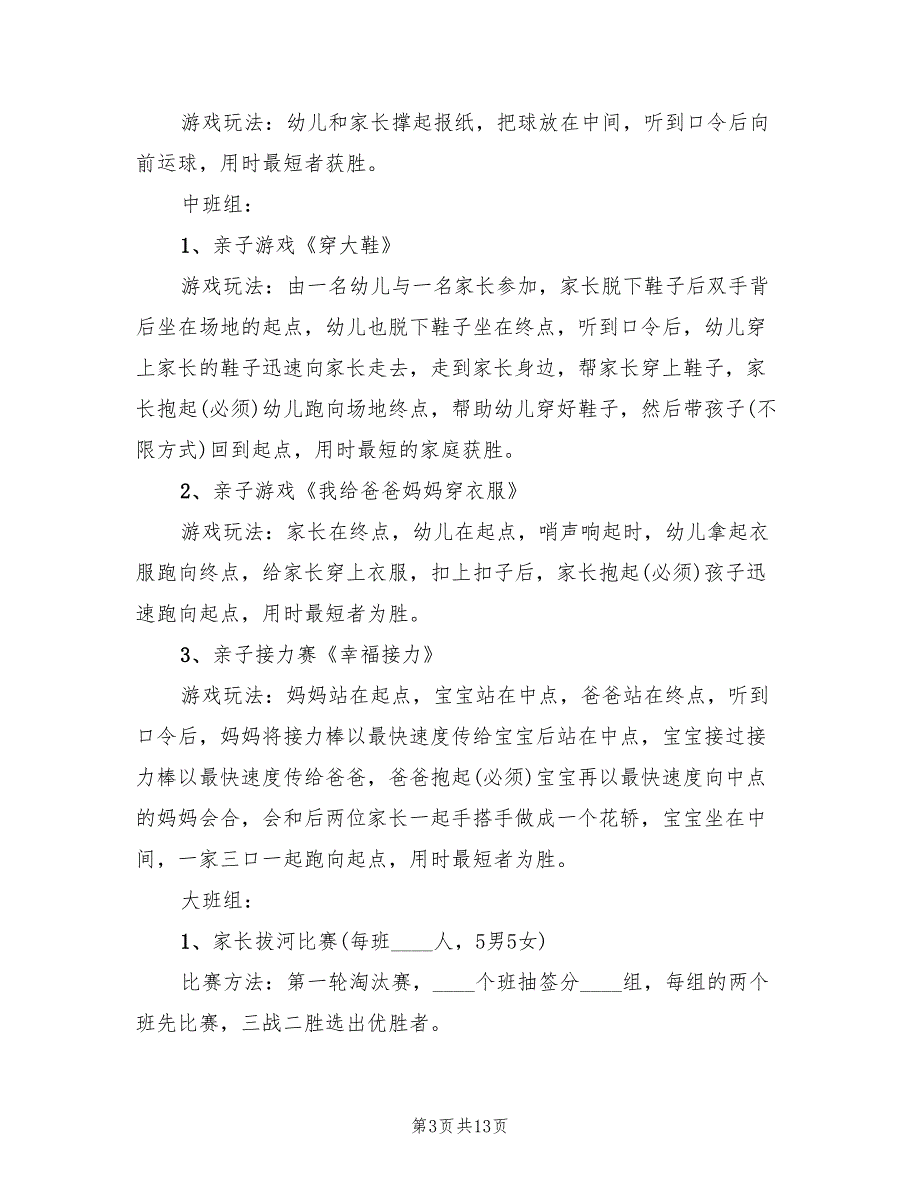 游戏玩法：幼儿和家长撑起报纸，把球放在中间，听到口令后向
前运球，用时最短者获胜。
中班组：
1、亲子游戏《穿大鞋》
游戏玩法：由一名幼儿与一名家长参加，家长脱下鞋子后双手背
后坐在场地的起点，幼儿也脱下鞋子坐在终点，听到口令后，幼儿穿
上家长的鞋子迅速向家长走去，走到家长身边，帮家长穿上鞋子，家
长抱起(必须)幼儿跑向场地终点，帮助幼儿穿好鞋子，然后带孩子(不
限方式)回到起点，用时最短的家庭获胜。
2、亲子游戏《我给爸爸妈妈穿衣服》
游戏玩法：家长在终点，幼儿在起点，哨声响起时，幼儿拿起衣
服跑向终点，给家长穿上衣服，扣上扣子后，家长抱起(必须)孩子迅
速跑向起点，用时最短者为胜。
3、亲子接力赛《幸福接力》
游戏玩法：妈妈站在起点，宝宝站在中点，爸爸站在终点，听到
口令后，妈妈将接力棒以最快速度传给宝宝后站在中点，宝宝接过接
力棒以最快速度传给爸爸，爸爸抱起(必须)宝宝再以最快速度向中点
的妈妈会合，会和后两位家长一起手搭手做成一个花轿，宝宝坐在中
间，一家三口一起跑向起点，用时最短者为胜。
大班组：
1、家长拔河比赛(每班____人，5男5女)
比赛方法：第一轮淘汰赛，____个班抽签分____组，每组的两个
班先比赛，三战二胜选出优胜者。
第3页共13页